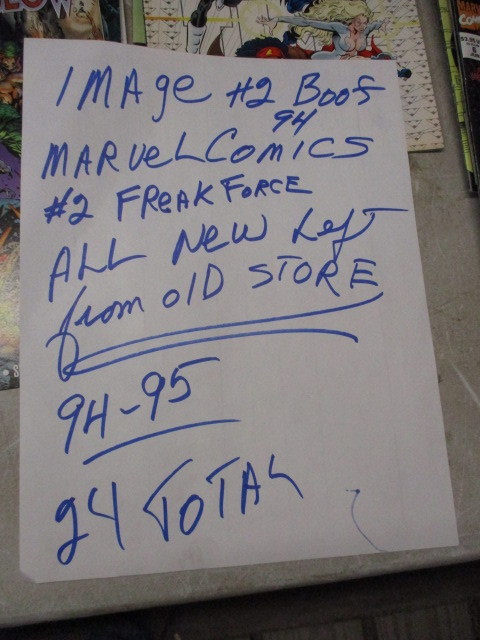 IMAge #2 Boof
94
MARVeL COMICS
#2 FReAK FORCE
ALL New Left
from OlD STORE
94-95
24 TOTAL